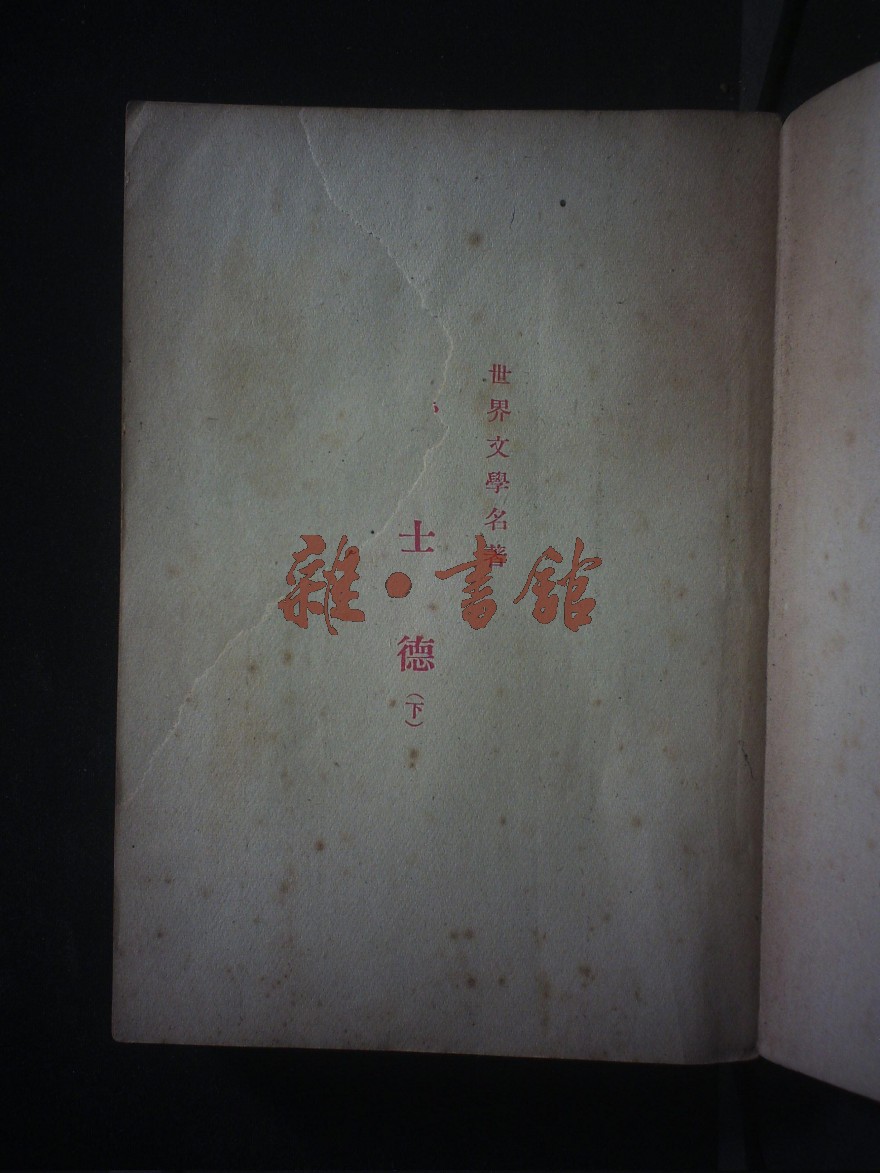 世界文學名著
士德
（下）
雜•書館